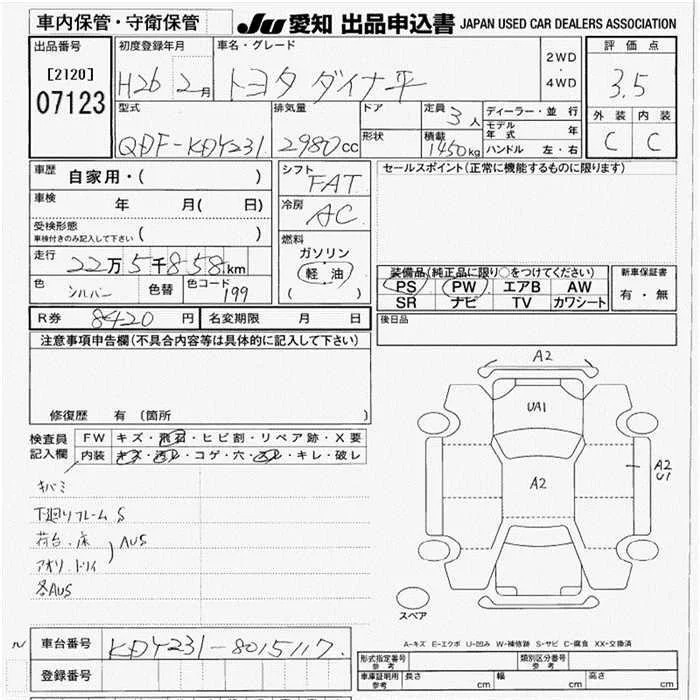 車内保管・守衛保管
JU 愛知 出品申込書 JAPAN USED CAR DEALERS ASSOCIATION
出品番号 初度登録年月 車名・グレード 2WD・4WD 評価点
[2120]
07123
H26 2月 トヨタ ダイナ平 3.5
型式 排気量 ドア 定員 3人 ディーラー・並行 外装 内装
モデル年式 年
QDF-KDY231 2980cc 形状 積載 1450kg ハンドル 左・右 C C
車歴 自家用・( )
シフト FAT
セールスポイント(正常に機能するものに限ります)
車検 年 月( 日)
冷房 AC
受検形態
車検付きのみ記入して下さい ( )
燃料
ガソリン
軽油
( )
走行 22万5千858km
装備品(純正品に限り○をつけてください) 新車保証書
PS PW エアB AW 有・無
SR ナビ TV カワシート
色 シルバー 色替 色コード 199
R券 8420円 名変期限 月 日
後日品
注意事項申告欄(不具合内容等は具体的に記入して下さい)
修復歴 有(箇所 )
検査員 FW キズ・飛石・ヒビ割・リペア跡・X要
記入欄 内装 キズ・汚レ・コゲ・穴・スレ・キレ・破レ
キバミ
下廻りフレーム S
荷台、床 AUS
アオリ、トリイ
各AUS
A2
UA1
A2
A2
U1
スペア
A-キズ E-エクボ U-凹み W-補修跡 S-サビ C-腐食 XX-交換済
車台番号 KDY231-8015117
登録番号
形式指定番号 参考 類別区分番号 参考
車庫証明用 参考 長さ cm 幅 cm 高さ cm